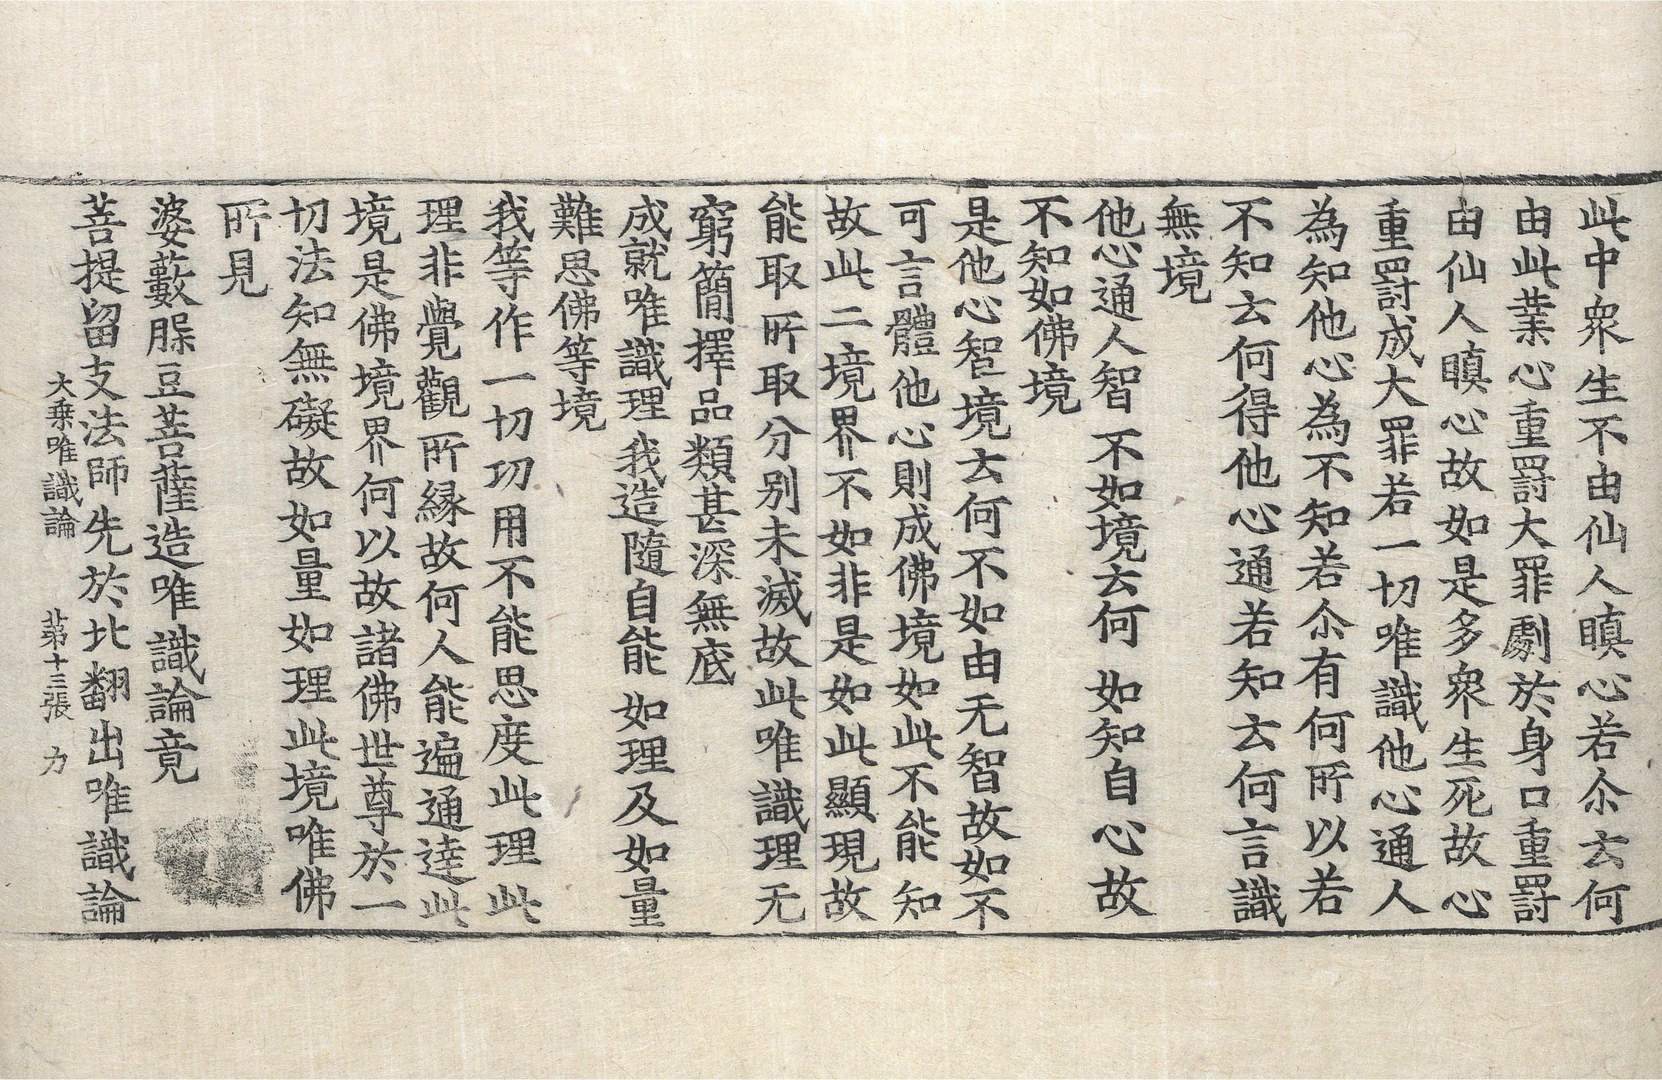 此中衆生不由仙人瞋心若尒云何
由此業心重罰大罪劇於身口重罰
由仙人瞋心故如是多衆生死故心
重罰成大罪若一切唯識他心通人
為知他心為不知若尒有何所以若
不知云何得他心通若知云何言識
無境
他心通人智 不如境云何 如知自心故
不知如佛境
是他心智境云何不如由无智故如不
可言體他心則成佛境如此不能知
故此二境界不如非是如此顯現故
能取所取分別未滅故此唯識理无
窮簡擇品類甚深無底
成就唯識理 我造隨自能 如理及如量
難思佛等境
我等作一切切用不能思度此理此
理非覺觀所縁故何人能遍通達此
境是佛境界何以故諸佛世尊於一
切法知無礙故如量如理此境唯佛
所見
婆藪䐗豆菩薩造唯識論竟
菩提留支法師先於北翻出唯識論
大乗唯識論 苐十三張 力